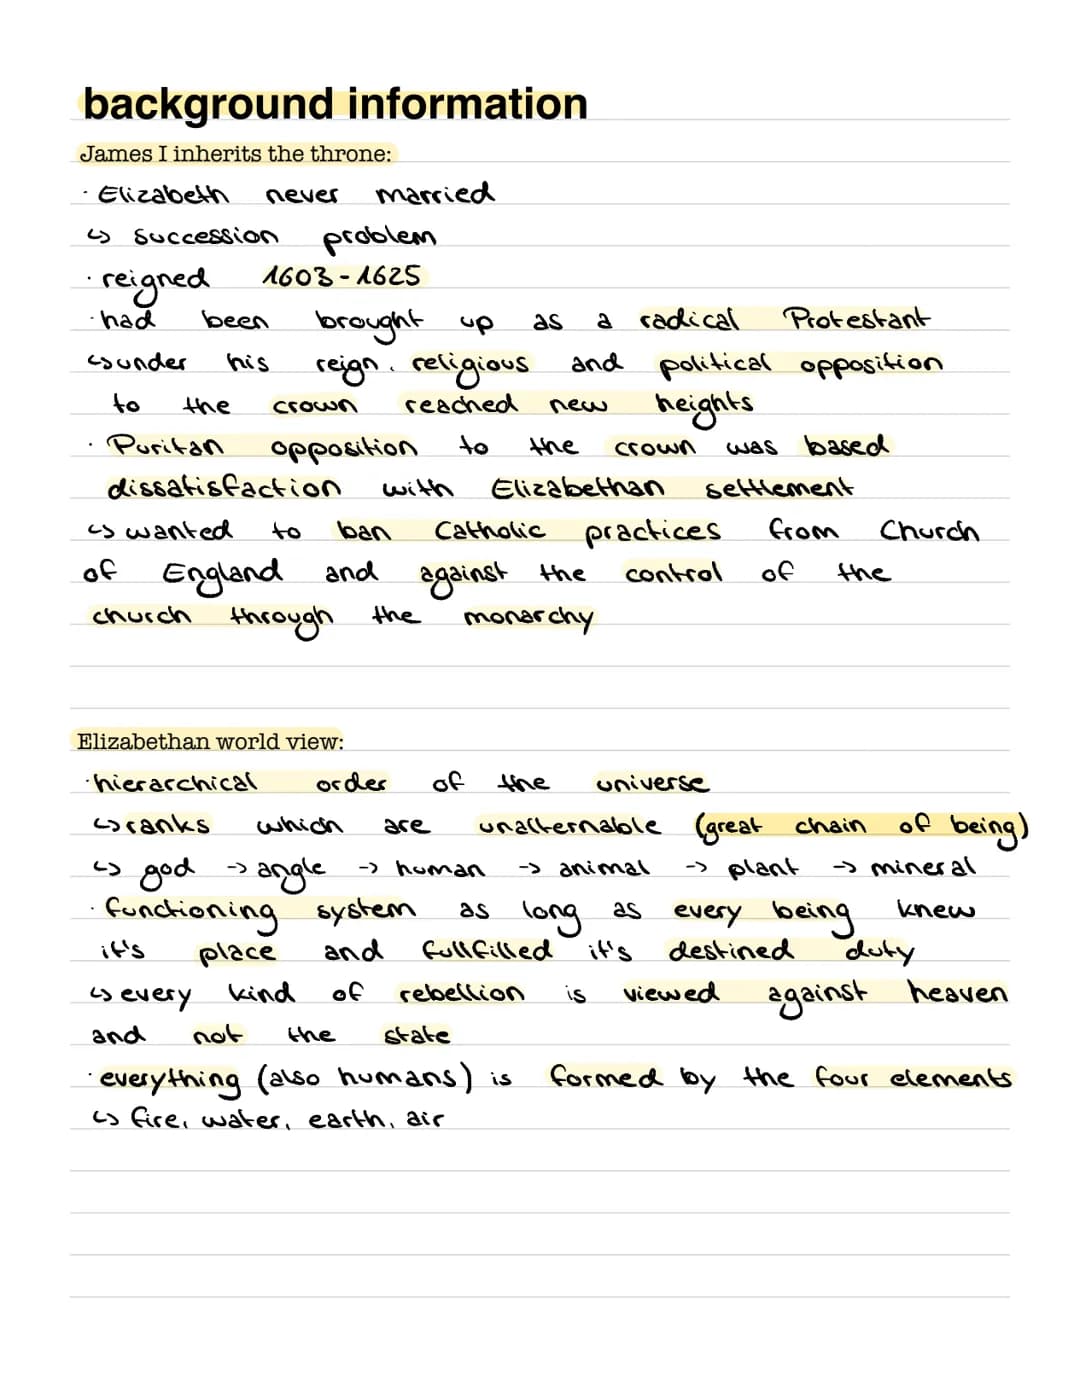 background information
James I inherits the throne:
· Elizabeth never married
↳ succession problem
· reigned 1603-1625
· had been brought up as a radical Protestant
↳ under his reign, religious and political opposition
to the crown reached new heights
· Puritan opposition to the crown was based
dissatisfaction with Elizabethan settlement
↳ wanted to ban Catholic practices from Church
of England and against the control of the
church through the monarchy
Elizabethan world view:
· hierarchical order of the universe
↳ ranks which are unalternable (great chain of being)
↳ god -> angle -> human -> animal -> plant -> mineral
· functioning system as long as every being knew
it's place and fullfilled it's destined duty
↳ every kind of rebellion is viewed against heaven
and not the state
· everything (also humans) is formed by the four elements
↳ fire, water, earth, air